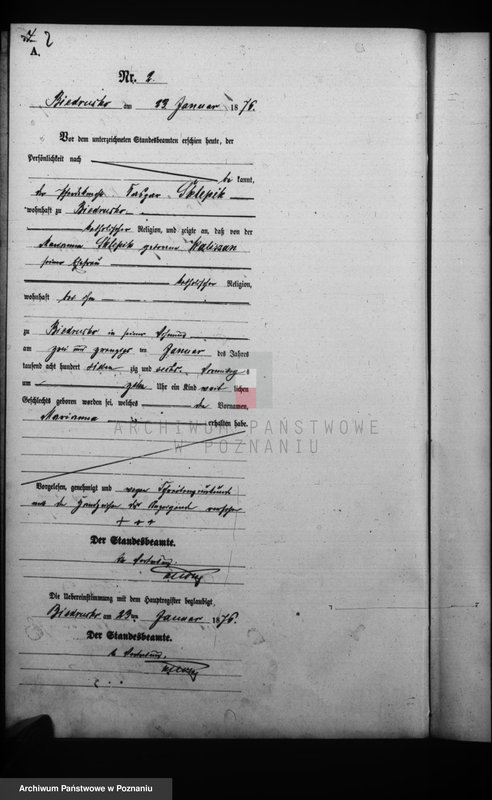 2
A.
Nr. 2.
Biedrusko am 23 Januar 1876.
Vor dem unterzeichneten Standesbeamten erschien heute, der
Persönlichkeit nach
be kannt,
der Pferdeknecht Caspar Sklepik
wohnhaft zu Biedrusko
katholischer Religion, und zeigte an, daß von der
Marianna Sklepik geborene Kaliszan
seiner Ehefrau
katholischer Religion,
wohnhaft bei ihm
zu Biedrusko in seiner Wohnung
am zwei und zwanzigsten Januar des Jahres
tausend acht hundert sieben zig und sechs Vormittag s
um Uhr ein Kind weib lichen
Geschlechts geboren worden sei, welches den Vornamen,
Marianna
erhalten habe.
ARCHIWUM PAŃSTWOWE
W POZNANIU
Vorgelesen, genehmigt und wegen Schreibensunkunde
mit den Handzeichen des Anzeigenden versehen
+ + +
Der Standesbeamte.
In Vertretung.
Die Uebereinstimmung mit dem Hauptregister beglaubigt,
Biedrusko am 23ten Januar 1876.
Der Standesbeamte.
In Vertretung.
Archiwum Państwowe w Poznaniu